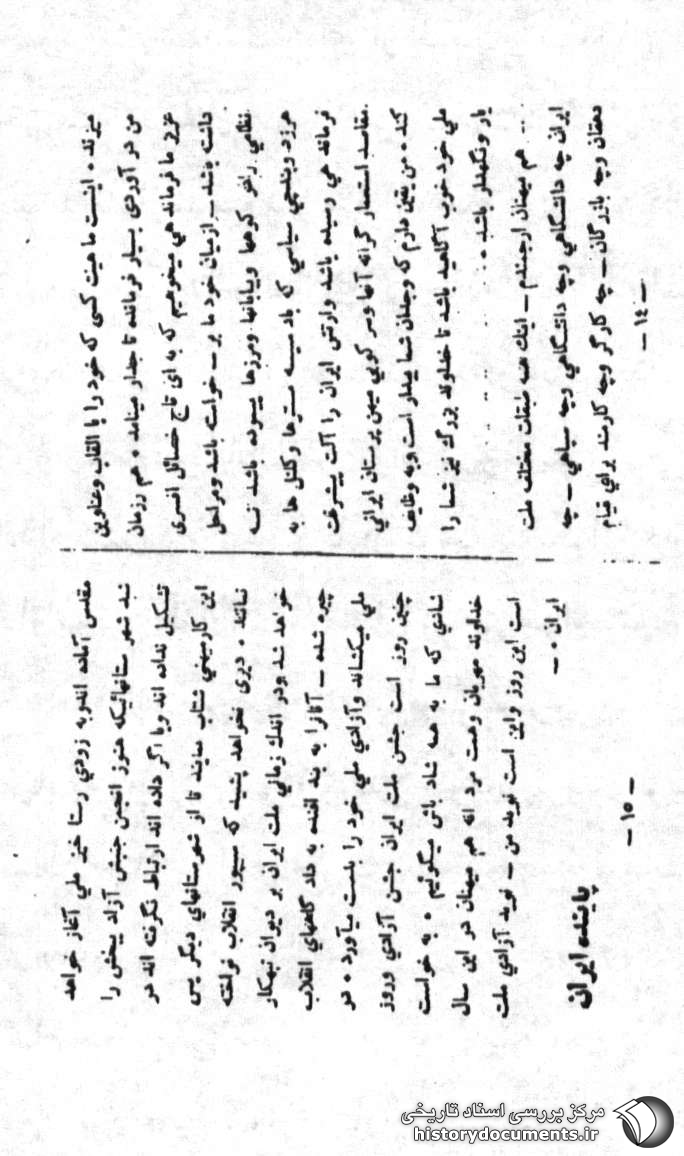 میزند . اینست ماهیت کسی که خود را با القاب وعناوین
من در آوردی بسیار فرمانده تا جدار مینامد . هم رزمان
عزیز ما فرماندهی میخواهیم که به ای تاج خصائل افسری
داشته باشد ـ ازمیان خود ما بر ـ خواسته باشد ومراحل
نظامی را در کوهها وبیابانها ومرزها پیموده باشد نه
هرزه ودلقکی سیاسی که با دسیسه مسترها و کلنل ها به
فرماندهی رسیده باشد وارتش ایران را آلت پیشرفت
مقاصد استعمار گرانه آنها وسر کوبی میهن پرستان ایرانی
کند . من یقین دارم که وجدان شما بیدار است وبه وظایف
ملی خود خوب آگاهید باشد تا خداوند بزرگ نیز شما را
یار ونگهدار باشد .
هم میهنان ارجمندم ـ اینك همه طبقات مختلف ملت
ایران چه دانشگاهی وچه دانشگاهی وچه سپاهی ـ چه
دهقان وچه بازرگان ـ چه کارگر وچه کارمند برای قیام
ـ ١٤ ـ
مقدس آماده اندوبه زودی رستا خیز ملی آغاز خواهد
شد شهرستانهائیکه هنوز انجمن جنبش آزاد یبخش را
تشکیل نداده اند ویا اگر داده اند ارتباط نگرفته اند در
این کارمیهنی شتاب نمایند تا از شهرستانهای دیگر پس
نمانند . دیری نخواهد پائید که شیپور انقلاب نواخته
خواهد شد ودر اندك زمانی ملت ایران بر دیوان تبهکار
چیره شده ـ آنانرا به بند افکنده به داد گاههای انقلاب
ملی میکشاند وآزادی ملی خود را بدست میآورد . در
چنین روز است جشن ملت ایران جشن آزادی وروز
شادی که ما به همه شاد باش میگوئیم . به خواست
خداوند مهربان وهمت مرد انه هم میهنان در این سال
است این روز واین است نوید من ـ نوید آزادی ملت
ایران . ـ
پاینده ایران
ـ ١٥ ـ
مرکز بررسی اسناد تاریخی
historydocuments.ir